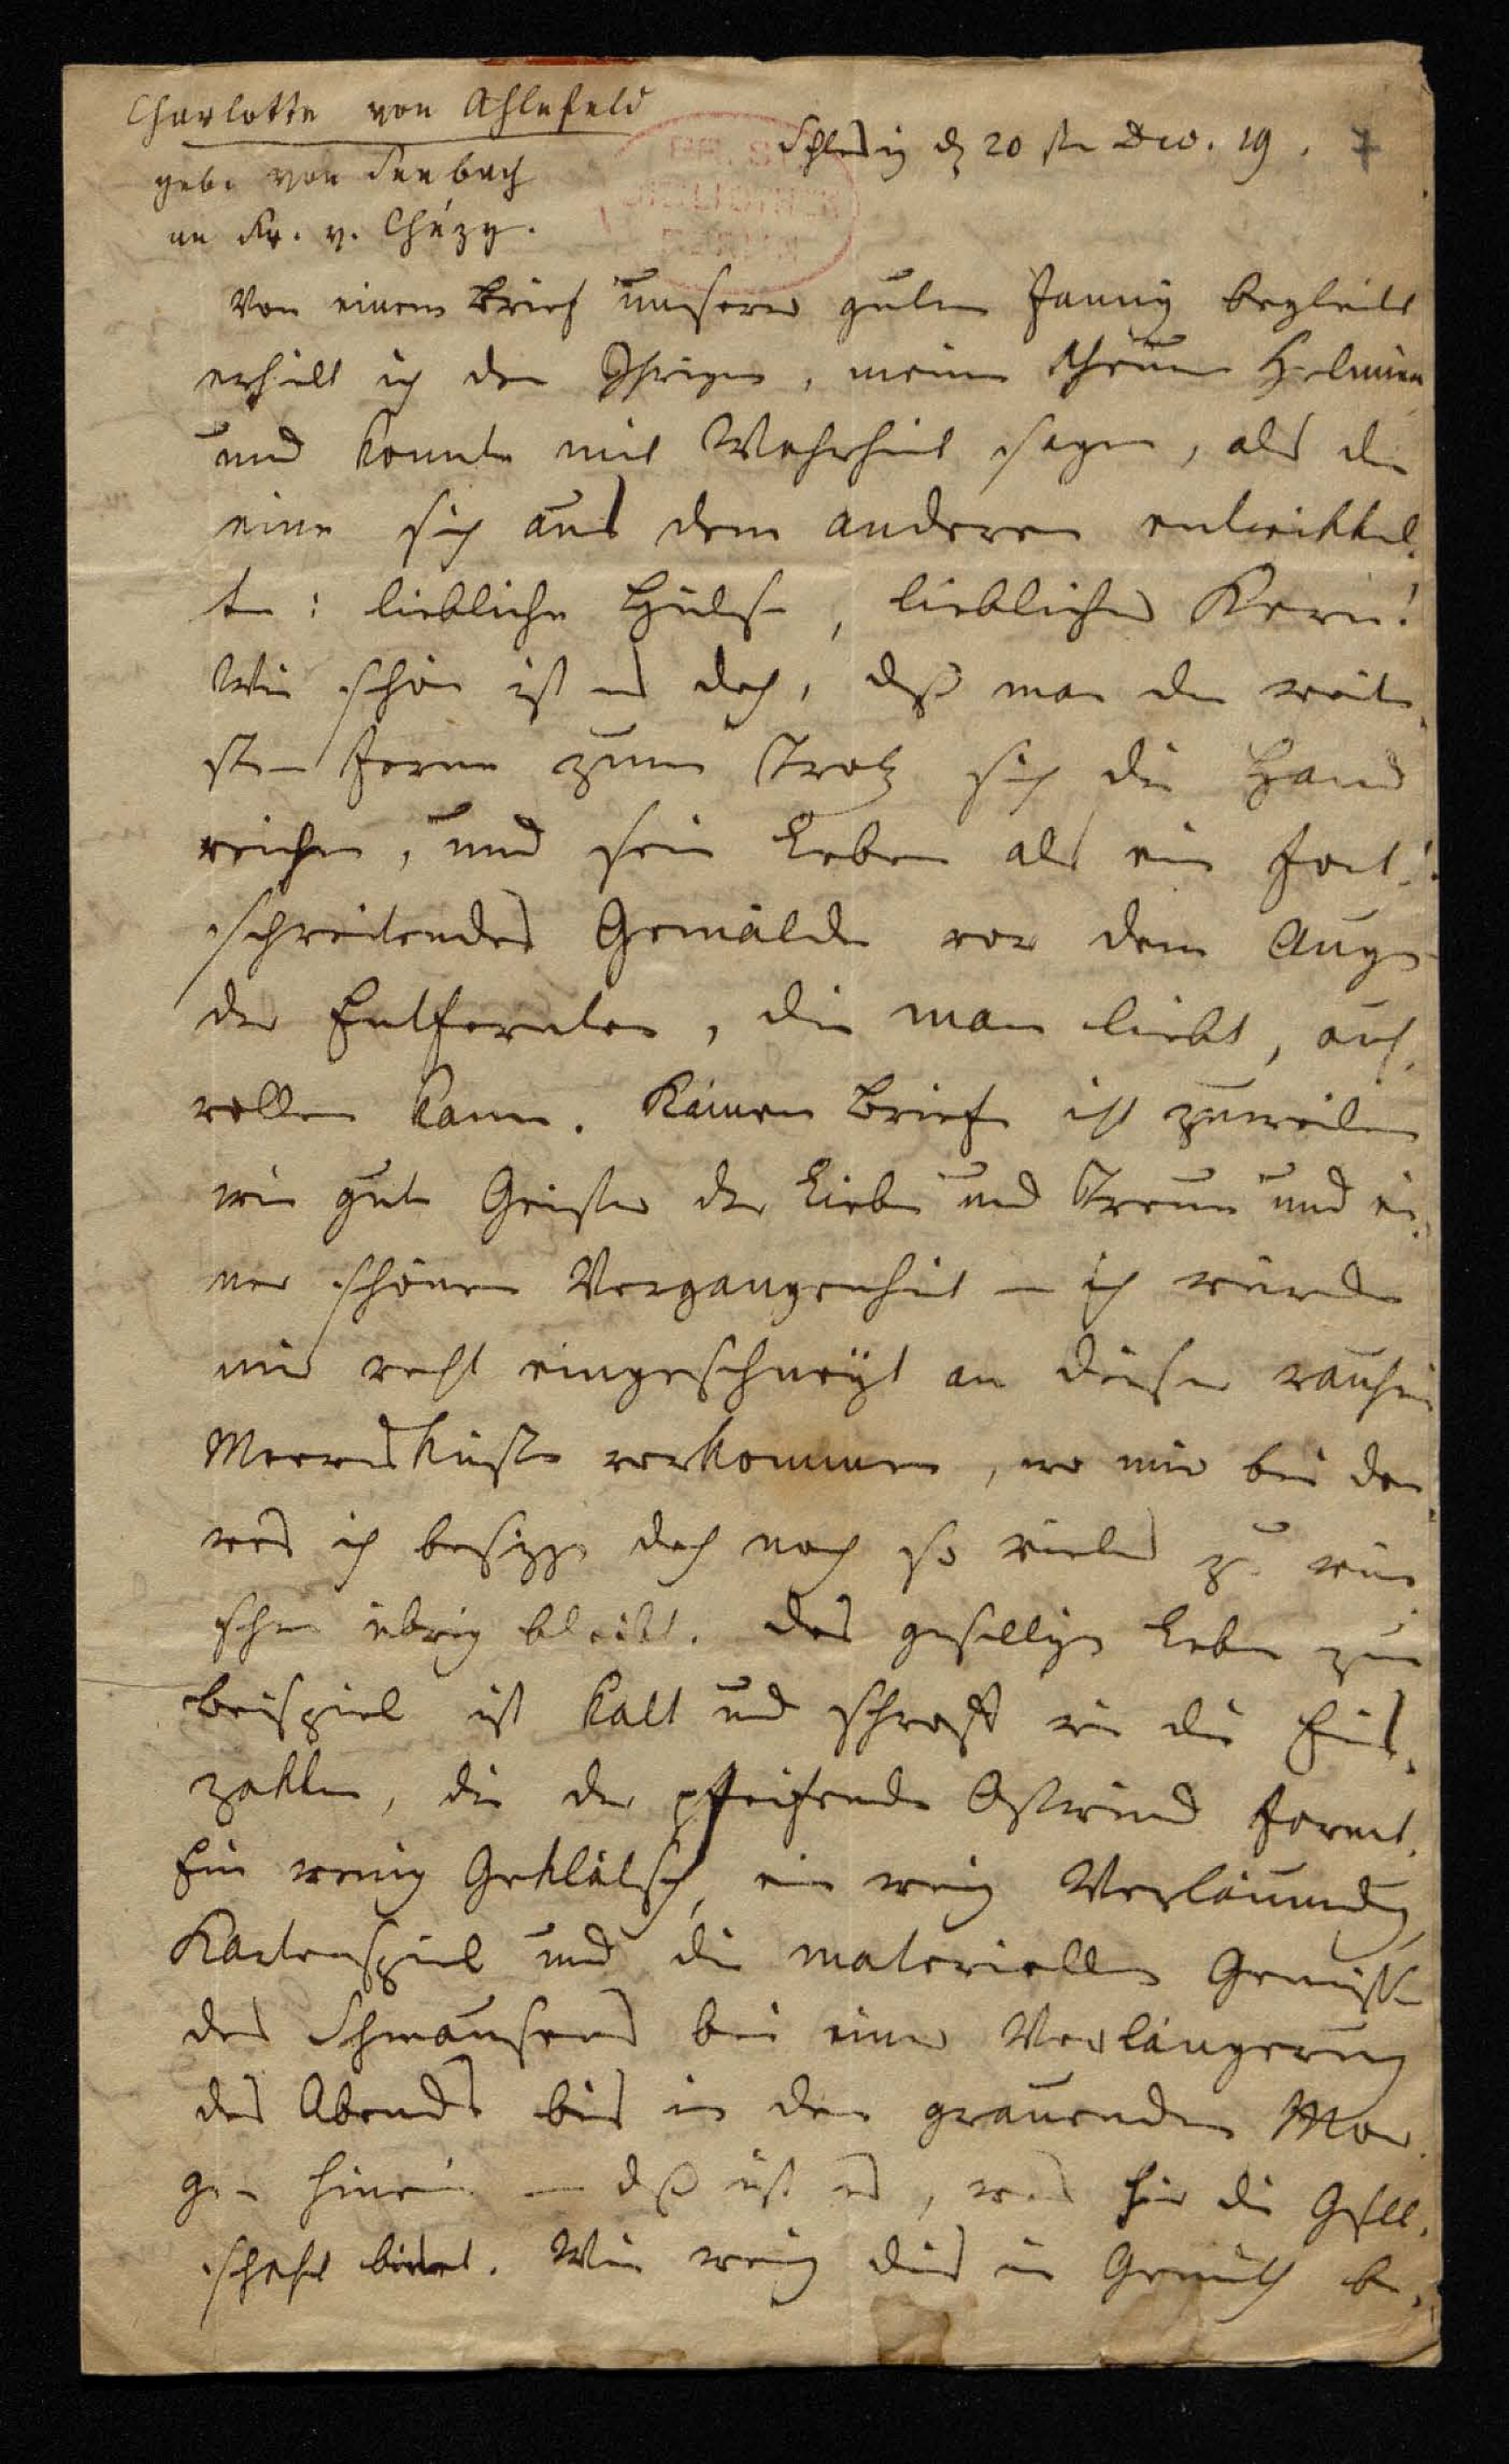 Charlotte von Ahlefeld
geb. von Seebach
an Fr. v. Chézy.
Schleswig d 20 ste Dec. 19.
Von einem Brief unserer guten Fanny begleitet
erhielt ich den Ihrigen, meine theure Helmina
und konnte mit Wahrheit sagen, als der
eine sich aus dem anderen entwikkel-
te: liebliche Hülse, lieblicher Kern!
Wie schön ist es doch, daß man der weite-
sten Ferne zum Trotz sich die Hand
reichen, und sein Leben als ein fort-
schreitendes Gemälde vor dem Auge
der Entfernten, die man liebt, auf-
rollen kann. Kämen Briefe nicht zuweilen
wie gute Geister der Liebe und Treue und ei-
ner schönen Vergangenheit – ich würde
mir recht eingeschneyt an dieser rauhen
Meeresküste vorkommen, wo mir bei dem
was ich besizze doch noch so vieles zu wün-
schen übrig bleibt. Das gesellige Leben zum
Beispiel ist kalt und schroff wie die Eis-
zakken, die der pfeifende Ostwind formt.
Ein wenig Geklätsch, ein wenig Verläumdung,
Kartenspiel und die materiellen Genüsse
des Schmausens bei einer Verlängerung
des Abends bis in den grauenden Mor-
gen hinein – daß ist es, was hier die Gesell-
schaft bietet. Wie wenig dies ein Gemüth be-